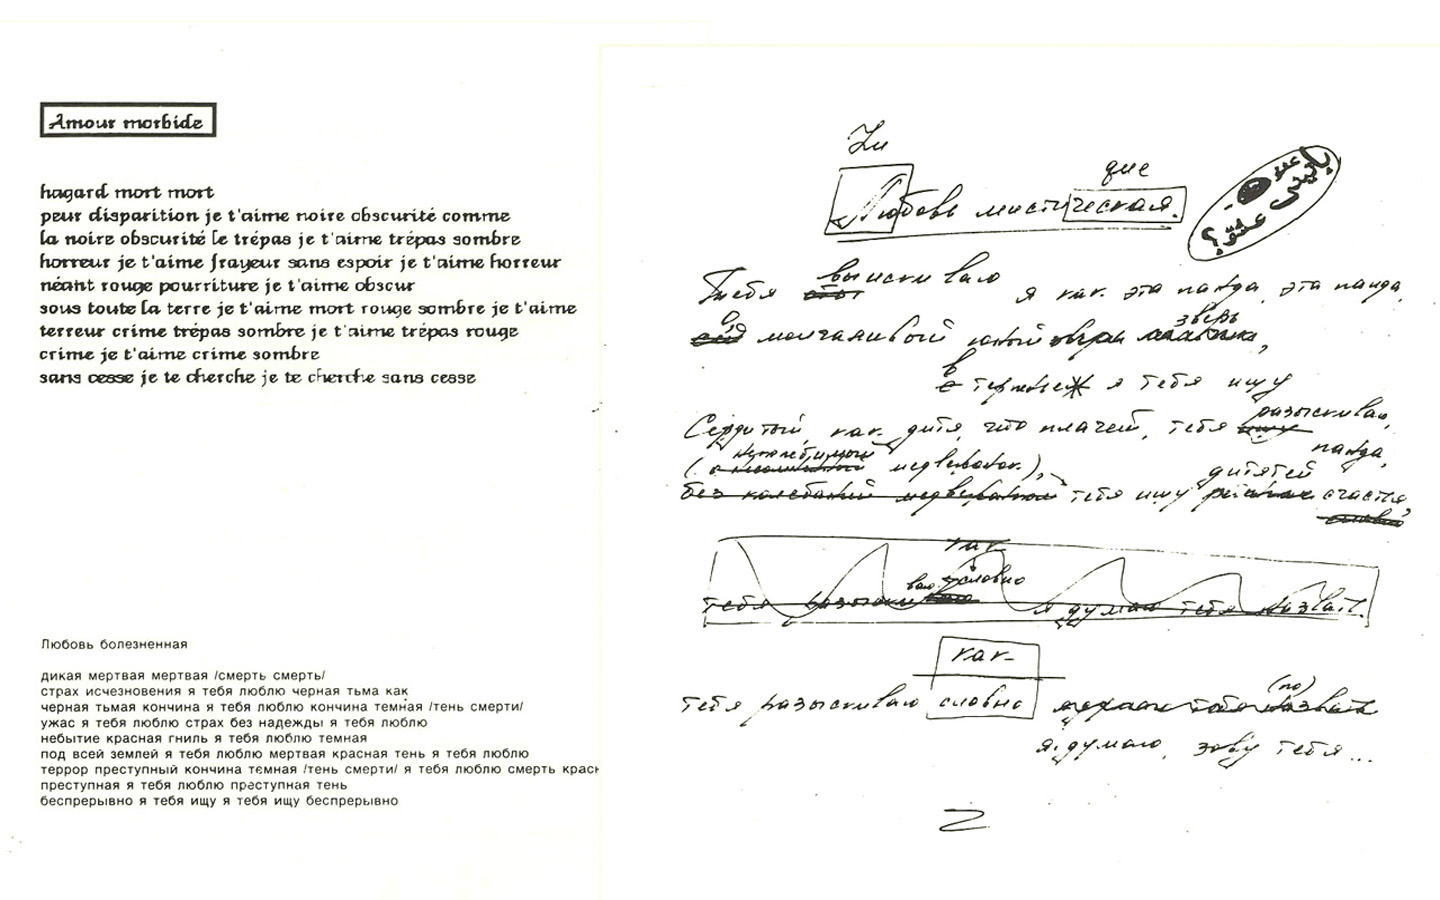 Amour morbide
hagard mort mort
peur disparition je t'aime noire obscurité comme
la noire obscurité le trépas je t'aime trépas sombre
horreur je t'aime frayeur sans espoir je t'aime horreur
néant rouge pourriture je t'aime obscur
sous toute la terre je t'aime mort rouge sombre je t'aime
terreur crime trépas sombre je t'aime trépas rouge
crime je t'aime crime sombre
sans cesse je te cherche je te cherche sans cesse
Любовь болезненная
дикая мертвая мертвая /смерть смерть/
страх исчезновения я тебя люблю черная тьма как
черная тьмая кончина я тебя люблю кончина темная /тень смерти/
ужас я тебя люблю страх без надежды я тебя люблю
небытие красная гниль я тебя люблю темная
под всей землей я тебя люблю мертвая красная тень я тебя люблю
террор преступный кончина темная /тень смерти/ я тебя люблю смерть красн
преступная я тебя люблю преступная тень
беспрерывно я тебя ищу я тебя ищу беспрерывно
que
Любовь мистическая.
Тебя выискиваю я как эта панда, эта панда,
молчаливый юный зверь
в я тебя ищу
разыскиваю,
Сердитый, как дитя, что плачет, тебя
панда,
дитятей
тебя ищу счастья,
так
словно
тебя разыскиваю я думаю тебя позвать.
как
(по)
тебя разыскиваю словно
я думаю, зову тебя...